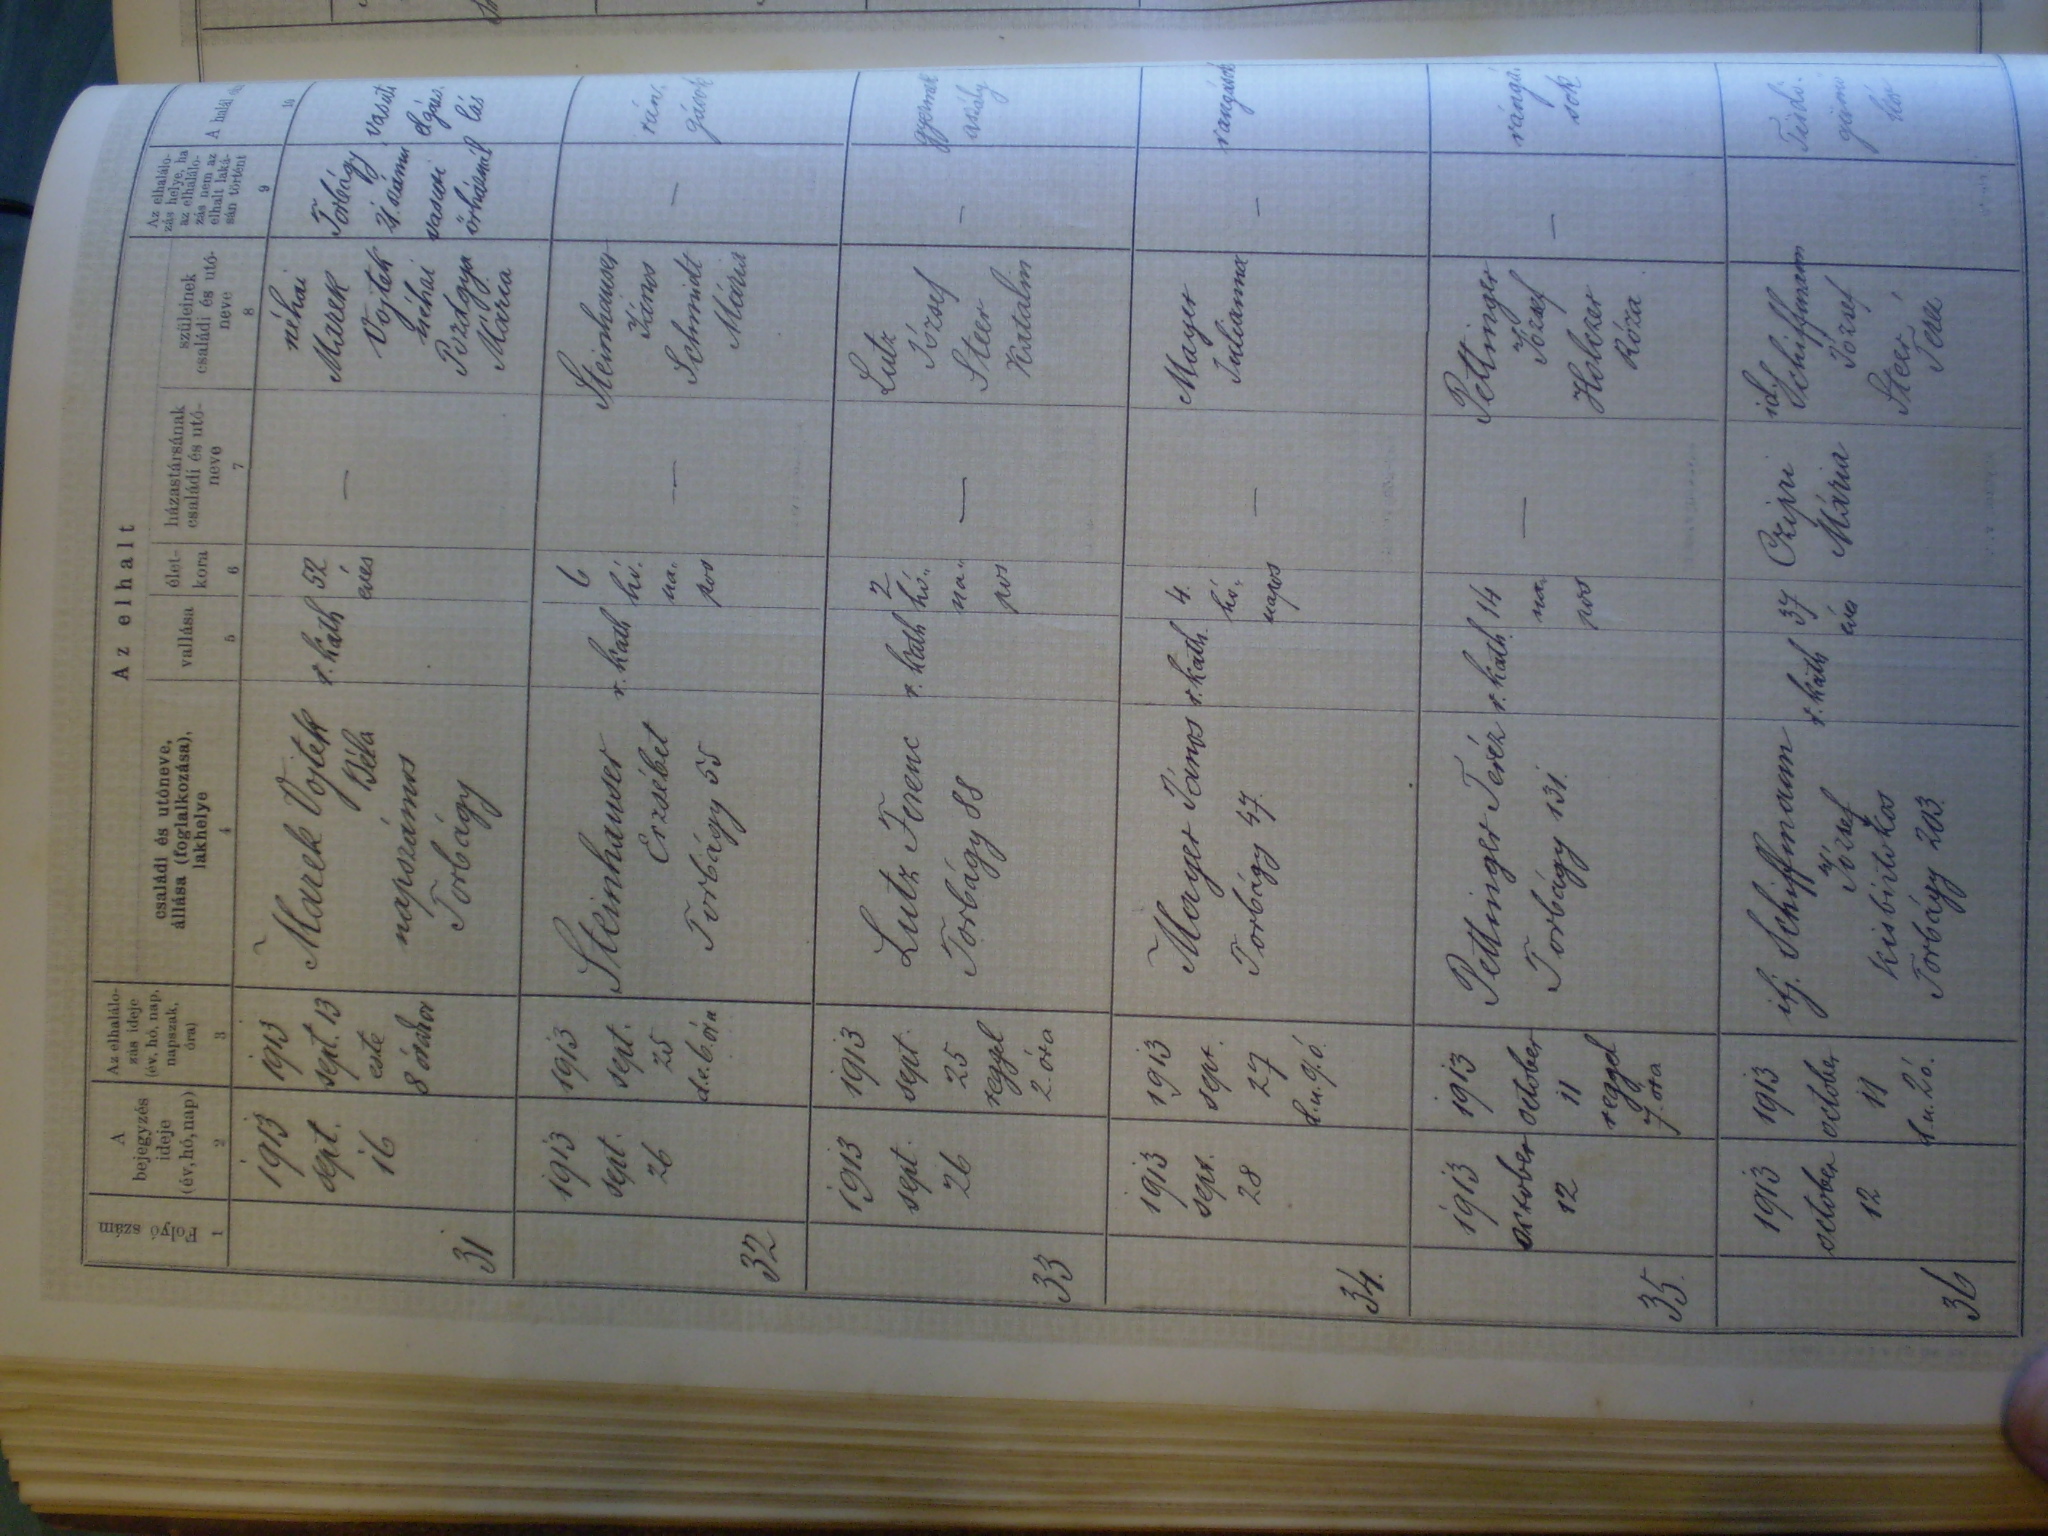 Az elhalt
Folyó szám
A bejegyzés ideje (év, hó, nap)
Az elhalálo-
zás ideje
(év, hó, nap,
napszak,
óra)
családi és utóneve,
állása (foglalkozása),
lakhelye
vallása
élet-
kora
házastársának
családi és utó-
neve
szüleinek
családi és utó-
neve
Az elhalálo-
zás helye, ha
az elhaláloz-
zás nem az
elhalt laká-
sán történt
A halál
1
2
3
4
5
6
7
8
9
31
1913
sept.
16
1913
sept. 13
este
8 órakor
Marek Vojtek
Béla
napszámos
Torbágy
r. kath
52
éves
—
néhai
Marek
Vojtek
néhai
Mária
Torbágy
21. számu
vasuti
őrháznál
vasuti
elgázo-
lás
32
1913
sept.
26
1913
sept.
25
d.e. 6 óra
Steinhauser
Erzsébet
Torbágy 55
r. kath
6
hó-
na-
pos
—
Steinhauser
János
Schmidt
Mária
—
rán-
gások
33
1913
sept.
26
1913
sept.
25
reggel
2. óra
Lutz Ferenc
Torbágy 88
r. kath
2
hó-
na-
pos
—
Lutz
József
Steer
Katalin
—
gyermek
aszály
34.
1913
sept.
28
1913
sept.
27
d.u. 9. ó.
Mayer János
Torbágy 47.
r. kath.
4.
hó-
napos
—
Mayer
Julianna
—
rángások
35.
1913
october
12
1913
october
11
reggel
7. óra
Pettinger Teréz
Torbágy 131.
r. kath.
14
na-
pos
—
Pettinger
József
Holczer
Róza
—
rángá-
sok
36
1913
october
12
1913
october
11
d.u. 2 ó.
ifj. Schiffmann
József
kisbirtokos
Torbágy 203.
r. kath
37
éves
Czipri
Mária
id. Schiffmann
József
Steer
Teréz
Tüdő-
gümő-
kór